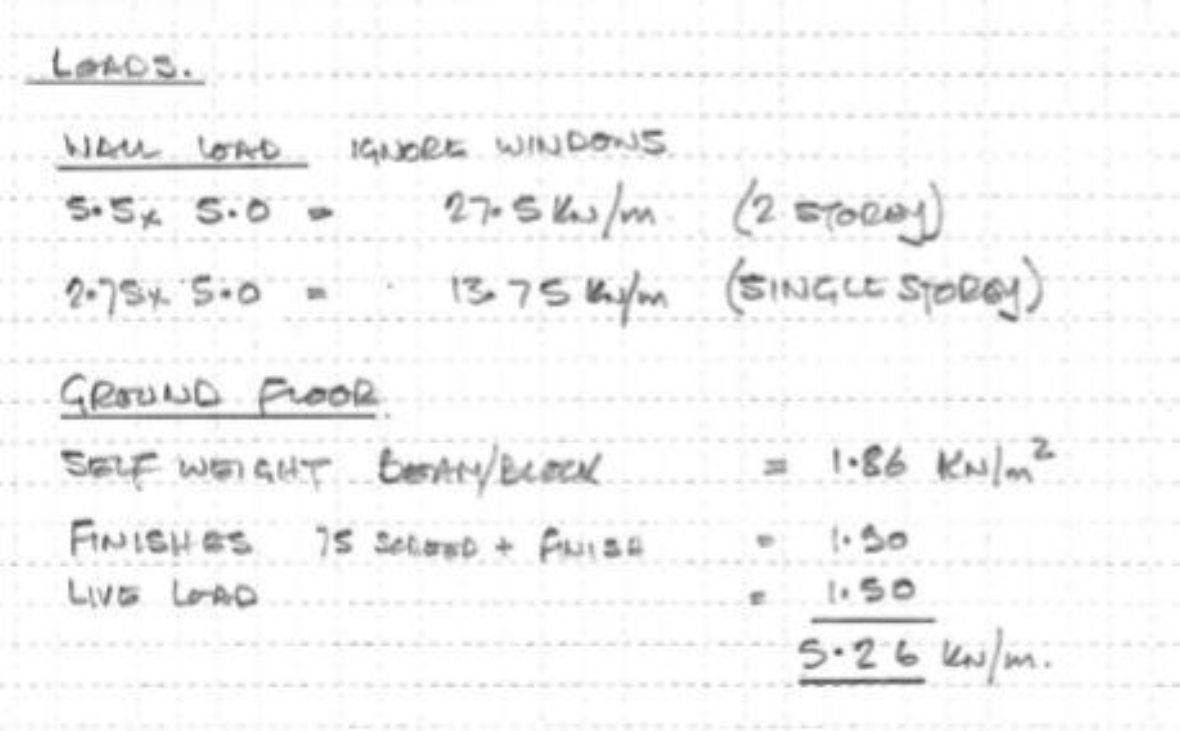 LOADS.
WALL LOAD IGNORE WINDOWS
5.5x 5.0 = 27.5 KN/m (2 STOREY)
2.75x 5.0 = 13.75 KN/m (SINGLE STOREY)
GROUND FLOOR
SELF WEIGHT BEAM/BLOCK = 1.86 KN/m²
FINISHES 75 SCREED + FINISH = 1.90
LIVE LOAD = 1.50
5.26 KN/m.